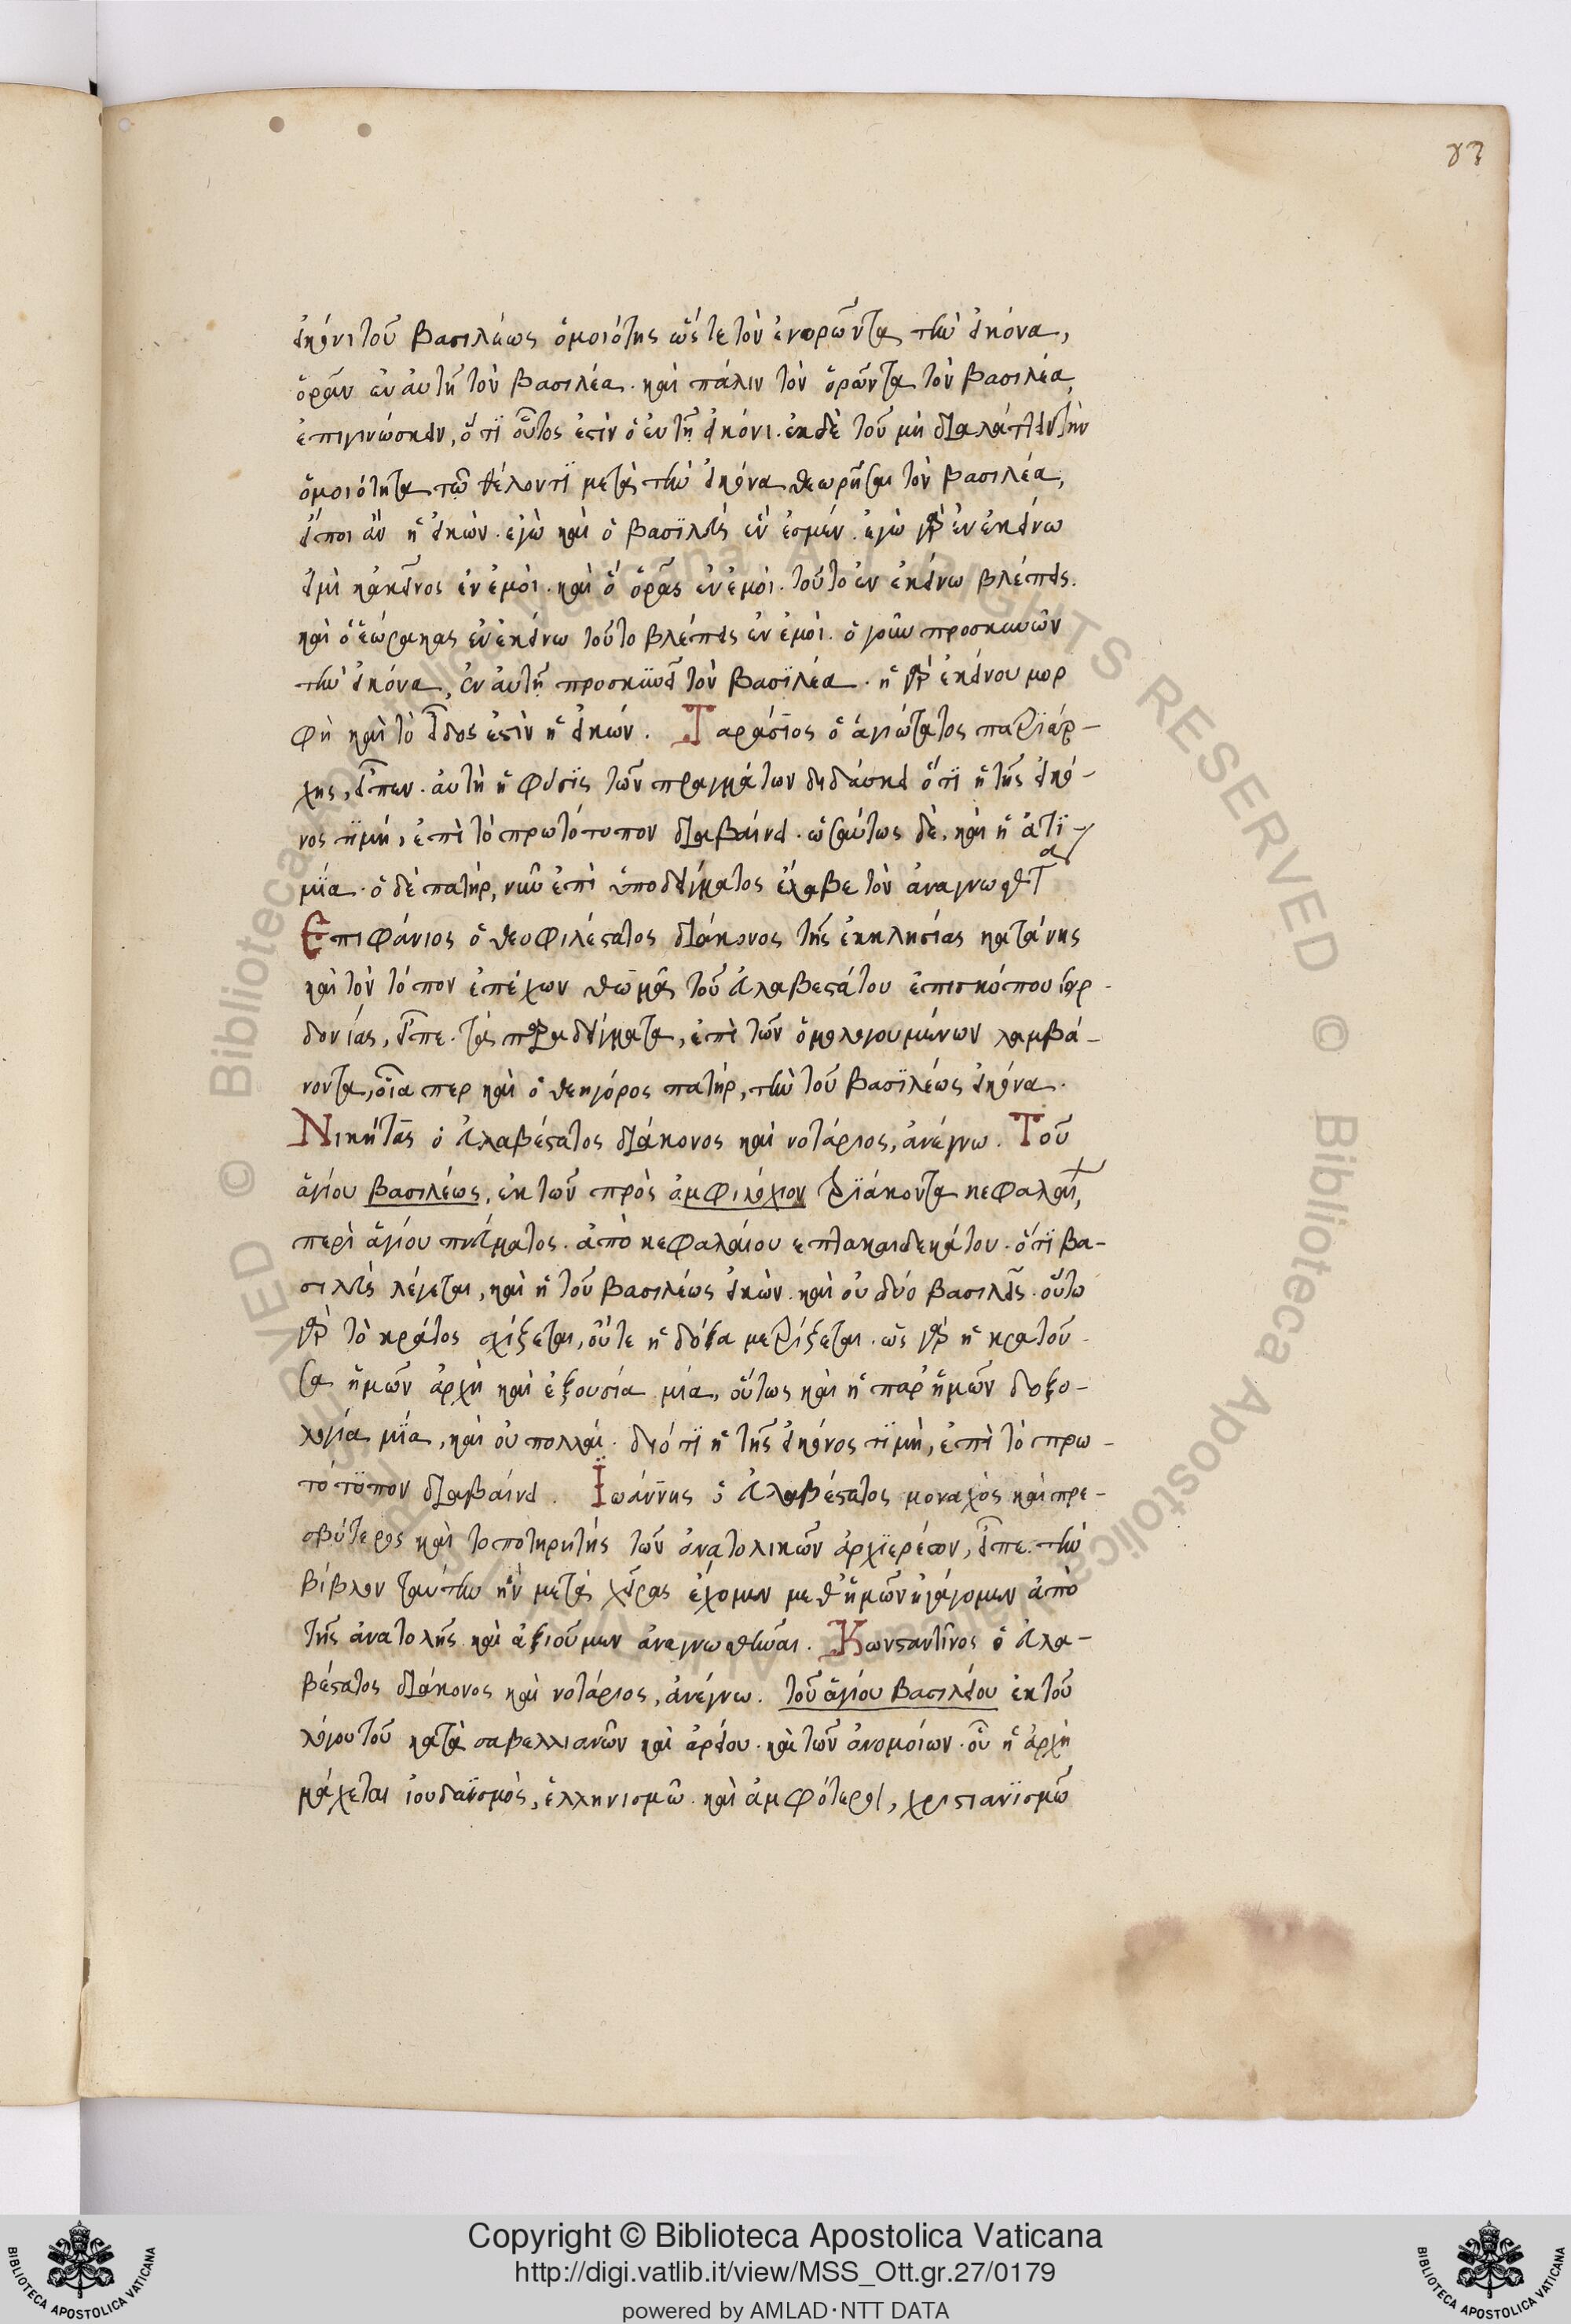 εἰκόνι τοῦ βασιλέως ὁμοιότης ὥστε τὸν ἐνορῶντα τὴν εἰκόνα,
ὁρᾶν ἐν αὐτῇ τὸν βασιλέα. καὶ πάλιν τὸν ὁρῶντα τὸν βασιλέα
ἐπιγινώσκειν, ὅτϊ οὗτος ἐστὶν ὁ ἐν τῇ εἰκόνι. ἐκ δὲ τοῦ μὴ διαλάττειν τὴν
ὁμοιότητα τῶ θέλοντϊ μετὰ τὴν εἰκόνα θεωρῆσαι τὸν βασιλέα,
εἴποι ἂν ἡ εἰκὼν. ἐγὼ καὶ ὁ βασϊλεὺς ἕν ἐσμέν. ἐγὼ γὰρ ἐν ἐκείνω
εἰμὶ κἀκεῖνος ἐν ἐμοὶ. καὶ ὃ ὁρᾶς ἐν ἐμοὶ. τοῦτο ἐν ἐκείνω βλέπεις.
καὶ ὃ ἑώρακας ἐν ἐκείνω τοῦτο βλέπεις ἐν ἐμοὶ. ὁ γοῦν προσκυνῶν
τὴν εἰκόνα, ἐν αὐτῇ προσκϋνεῖ τὸν βασϊλέα. ἡ γὰρ ἐκείνου μορ
φὴ καὶ τὸ εἶδος ἐστὶν ἡ εἰκών. Ταράσϊος ὁ ἁγιώτατος πατρϊάρ-
χης, εἶπεν. αὐτὴ ἡ φύσϊς τῶν πραγμάτων διδάσκει ὅτϊ ἡ τῆς εἰκό-
νος τϊμή, ἐπὶ τὸ πρωτότυπον διαβαίνει. ὡσαύτως δὲ, καὶ ἡ ἀτϊ-
μϊα. ὁ δὲ πατὴρ, νῦν ἐπὶ ὑποδείγματος ἔλαβε τὸν
Ἐπιφάνιος ὁ θεοφιλέστατος διάκονος τῆς ἐκκλησίας κατάνης
καὶ τὸν τόπον ἐπέχων θωμᾶ τοῦ ἁλαβεστάτου ἐπισκόπου σαρ-
δονίας, εἶπε. τὰ παραδείγματα, ἐπὶ τῶν ὁμολογουμένων λαμβά-
νονται, οἷα περ καὶ ὁ θεηγόρος πατὴρ, τὴν τοῦ βασϊλέως εἰκόνα.
Νικήτας ὁ ἁλαβέστατος διάκονος καὶ νοτάριος, ἀνέγνω. Τοῦ
ἁγίου βασιλέως, ἐκ τῶν πρὸς ἀμφιλόχιον τρϊάκοντα κεφαλαί,
περὶ ἁγίου πνεύματος. ἀπὸ κεφαλαίου επτακαιδεκάτου. ὅτϊ βα-
σιλεὺς λέγεται, καὶ ἡ τοῦ βασιλέως εἰκὼν. καὶ οὐ δύο βασιλεῖς. οὔτε
γὰρ τὸ κράτος σχίζεται, οὔτε ἡ δόξα μερίζεται. ὡς γὰρ ἡ κρατοῦ-
σα ἡμῶν ἀρχὴ καὶ ἐξουσία μία, οὕτως καὶ ἡ παρ' ἡμῶν δοξο-
λογία μϊα, καὶ οὐ πολλαί. διότϊ ἡ τῆς εἰκόνος τϊμὴ, ἐπὶ τὸ πρω-
τότϋπον διαβαίνει. Ἰωάννης ὁ ἁλαβέστατος μοναχὸς καὶ πρε-
σβύτερος καὶ τοποτηρητὴς τῶν ἀνατολικῶν ἀρχϊερέων, εἶπε. τὴν
βίβλον ταύτην ἣν μετὰ χεῖρας ἔχομεν μεθ' ἡμῶν ἠγάγομεν ἀπὸ
τῆς ἀνατολῆς καὶ ἀξιοῦμεν ἀναγνωσθῆναι. Κωνσταντῖνος ὁ ἁλα-
βέστατος διάκονος καὶ νοτάριος, ἀνέγνω. τοῦ ἁγίου βασιλείου ἐκ τοῦ
λόγου τοῦ κατὰ σαβελλιανῶν καὶ ἀρείου. καὶ τῶν ἀνομοίων. οὗ ἡ ἀρχὴ
μάχεται ἰουδαϊσμὸς, ἑλληνισμῶ. καὶ ἀμφότεροι, χριστιανϊσμῶ